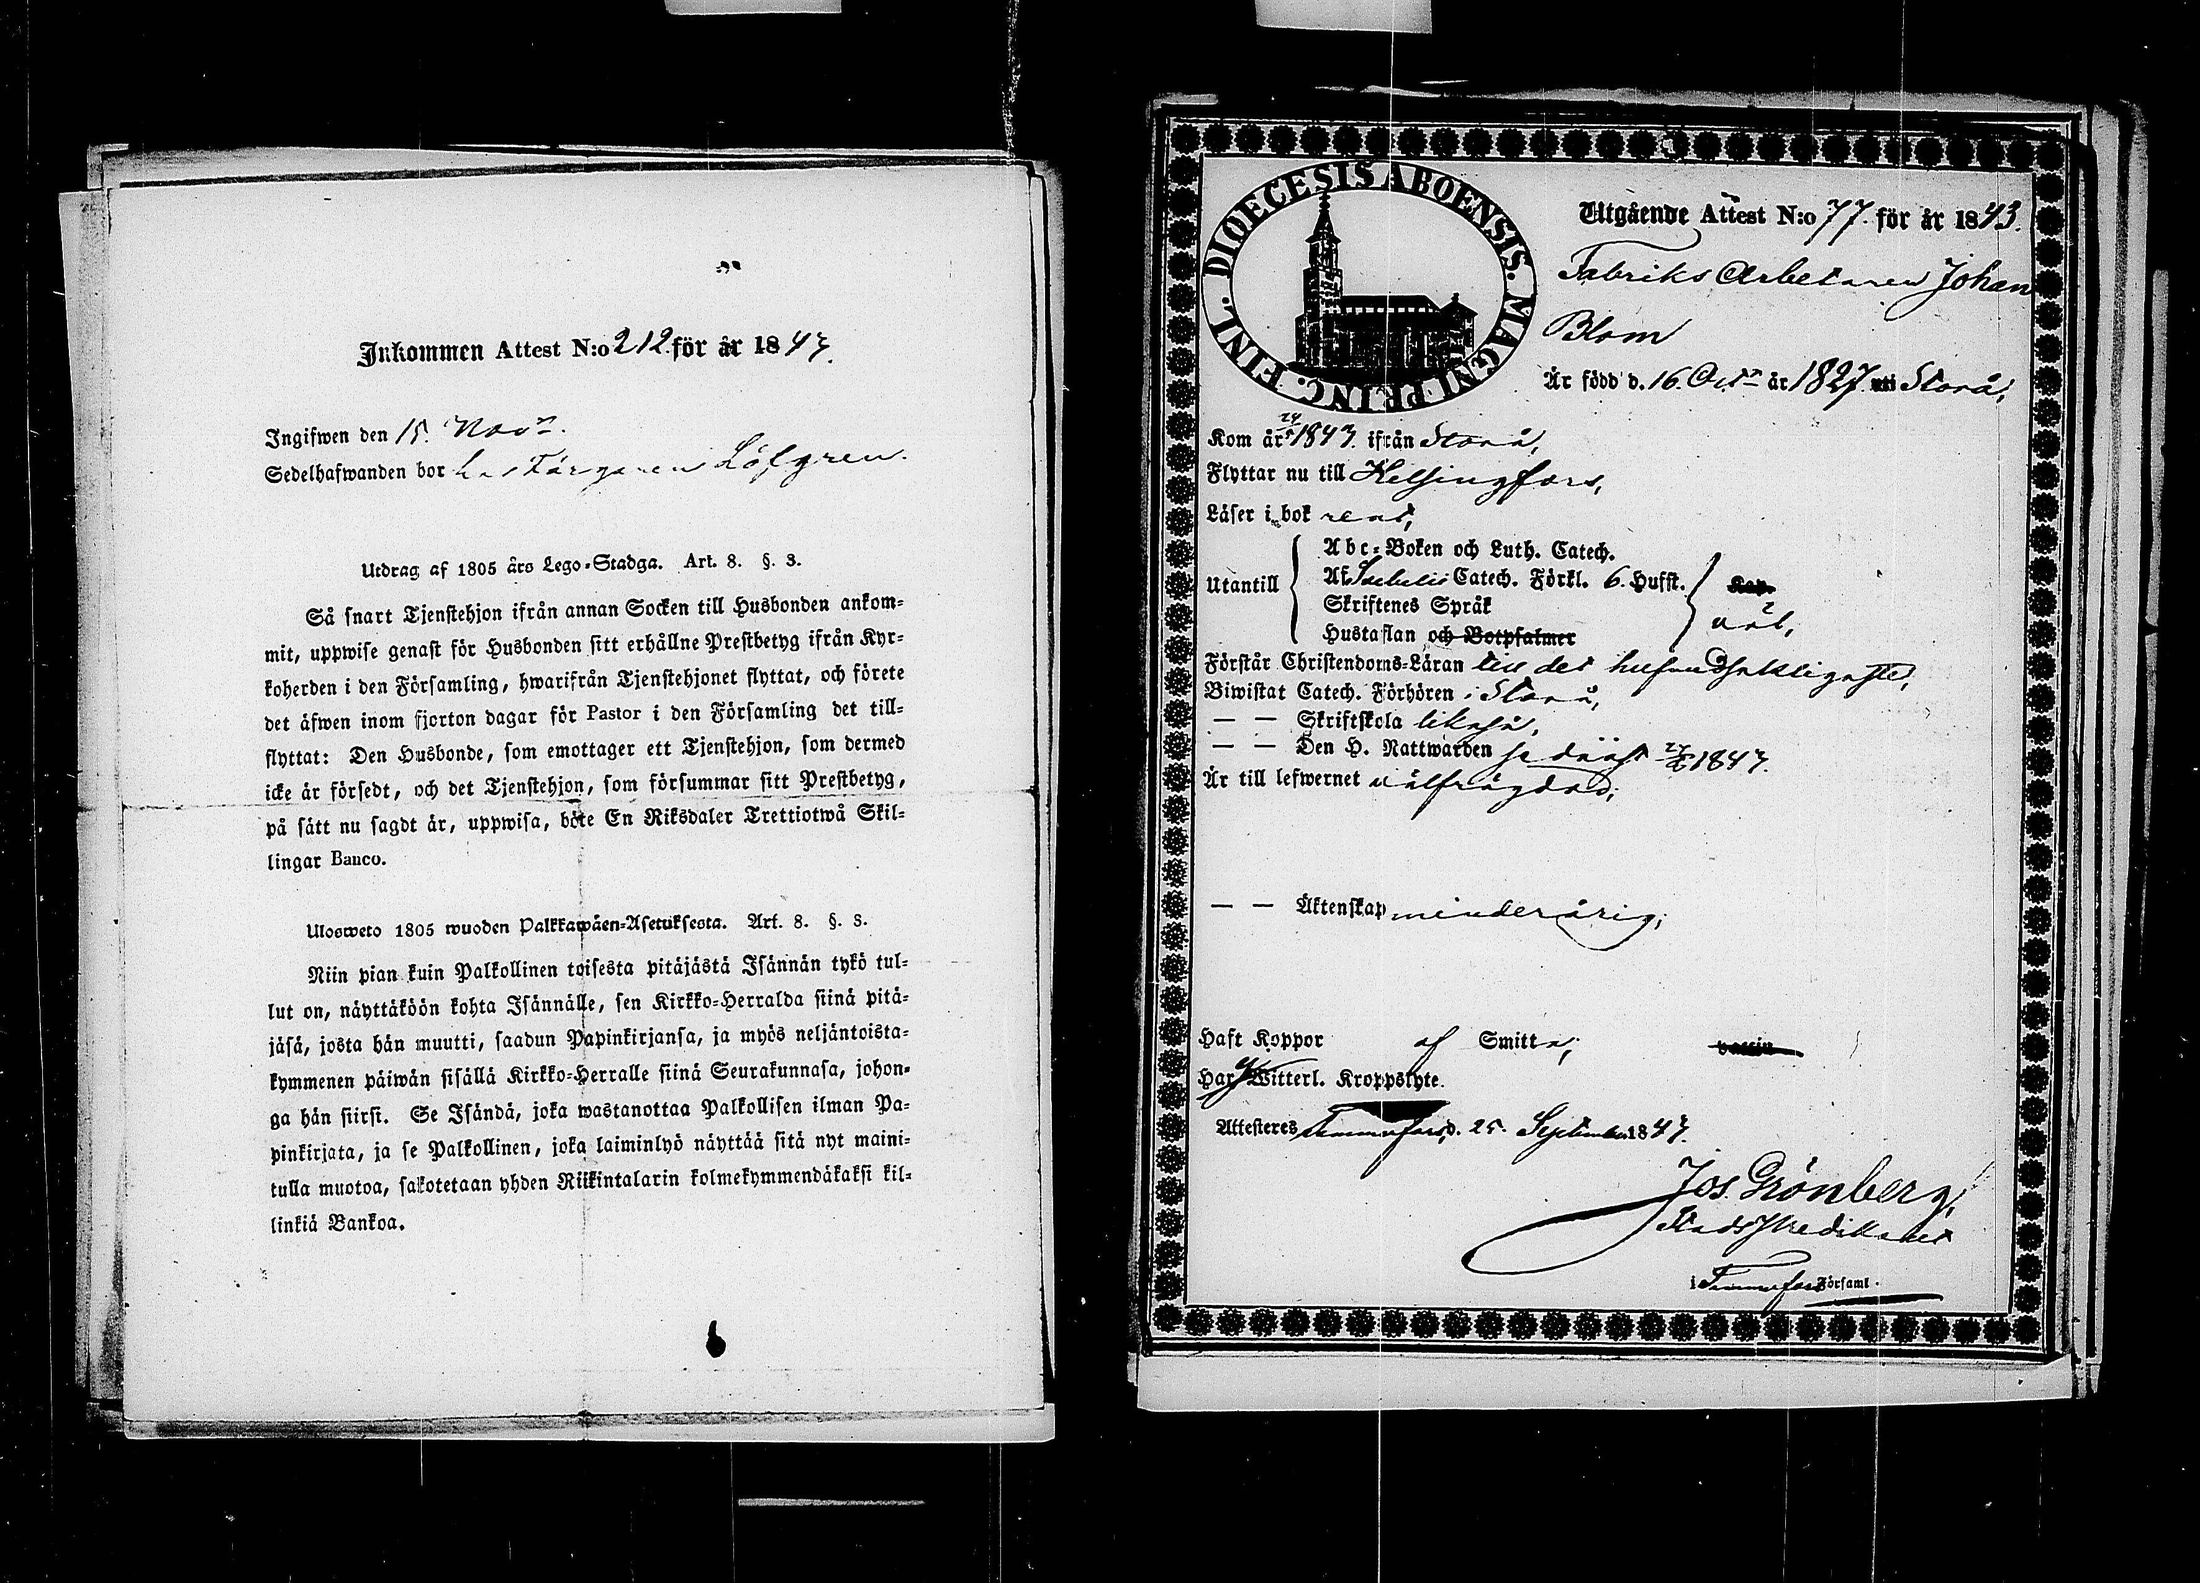 Inkommen Attest N:o 212. för år 1843.
Ingifwen den 15. Nov.
Sedelhafwanden bor hos Färgaren Löfgren.
Utdrag af 1805 års Lego-Stadga. Art. 8. §. 3.
Så snart Tjenstehjon ifrån annan Socken till Husbonden ankom-
mit, uppwise genast för Husbonden sitt erhållne Prestbetyg ifrån Kyr-
koherden i den Församling, hwarifrån Tjenstehjonet flyttat, och förete
det äfwen inom fjorton dagar för Pastor i den Församling det till-
flyttat: Den Husbonde, som emottager ett Tjenstehjon, som dermed
icke är försedt, och det Tjenstehjon, som försummar sitt Prestbetyg,
på sätt nu sagdt är, uppwisa, böte En Riksdaler Trettiotwå Skil-
lingar Banco.
Ulosweto 1805 wuoden Palkkawäen-Asetuksesta. Art. 8. §. 3.
Niin pian kuin Palkollinen toisesta pitäjästä Isännän tykö tul-
lut on, näyttäköön kohta Isännälle, sen Kirkko-Herralda siinä pitä-
jäsä, josta hän muutti, saadun Papinkirjansa, ja myös neljäntoista-
kymmenen päiwän sisällä Kirkko-Herralle siinä Seurakunnasa, johon-
ga hän siirsi. Se Isändä, joka wastanottaa Palkollisen ilman Pa-
pinkirjata, ja se Palkollinen, joka laiminlyö näyttää sitä nyt maini-
tulla muotoa, sakotetaan yhden Riikintalarin kolmekymmendäkaksi kil-
linkiä Bankoa.
DIOECESIS ABOENSIS. MAGNI PRINC. FINL.
Utgående Attest N:o 77. för år 1843.
Fabriks Arbetaren Johan
Blom
Är född d. 16. Oct. år 1827. uti Storå,
Kom år 1843. ifrån Storå,
Flyttar nu till Helsingfors,
Läser i bok rent,
Utantill
Abc-Boken och Luth. Catech.
Af Svebelii Catech. Förkl. 6. Hufst.
Skriftenes Språk
Hustaflan och Botpsalmer
Kap.
väl,
Förstår Christendoms-Läran till det hufvudsakligaste,
Biwistat Catech. Förhören i Storå,
— — Skriftskola likaså,
— — Den H. Nattwarden sednast 1843.
Är till lefwernet välfrägdad;
— — Äktenskap minderårig;
Haft Koppor af Smitta;
Har Witterl. Kroppslyte.
Attesteres Tammerfors d. 25. September 1843.
Jos. Grönberg,
Stads Predikant
i Tammerfors Församl.